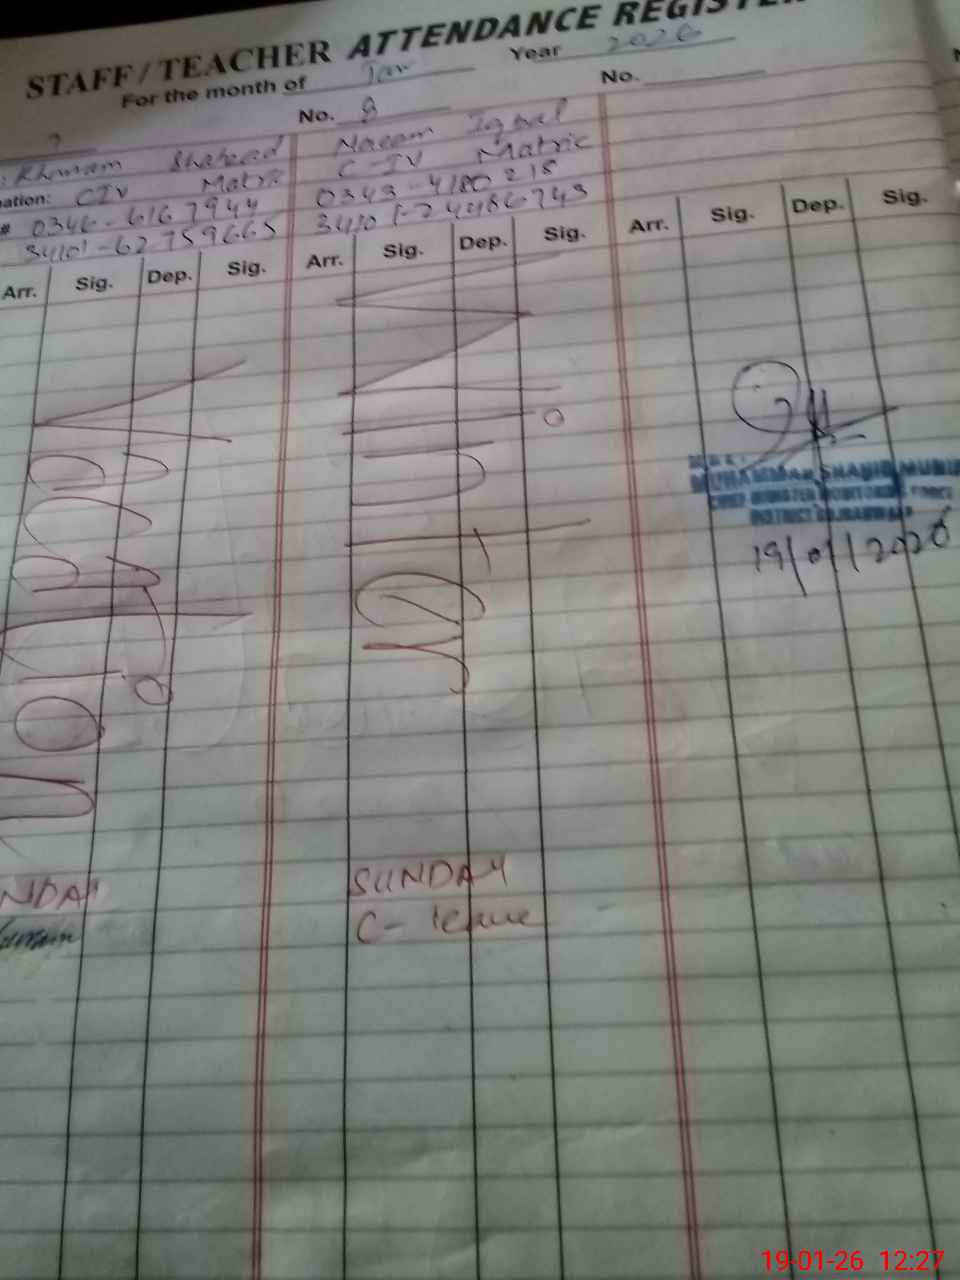 STAFF/TEACHER ATTENDANCE REGISTER
For the month of Jan Year 2026
No. 8
No.
Khanam Shaheed
Naeem Iqbal
nation: CIV Matric
C-IV Matric
# 0346-6167944
0343-4180218
34101-62759665
34101-24486743
Arr. Sig. Dep. Sig. Arr. Sig. Dep. Sig. Arr. Sig. Dep. Sig.
VACATION
WINTER
MUHAMMAD SHAHID
CHIEF MINISTER MONITORING FORCE
DISTRICT GUJRANWALA
19/01/2026
NDAY
SUNDAY
C- leave
19-01-26 12:27